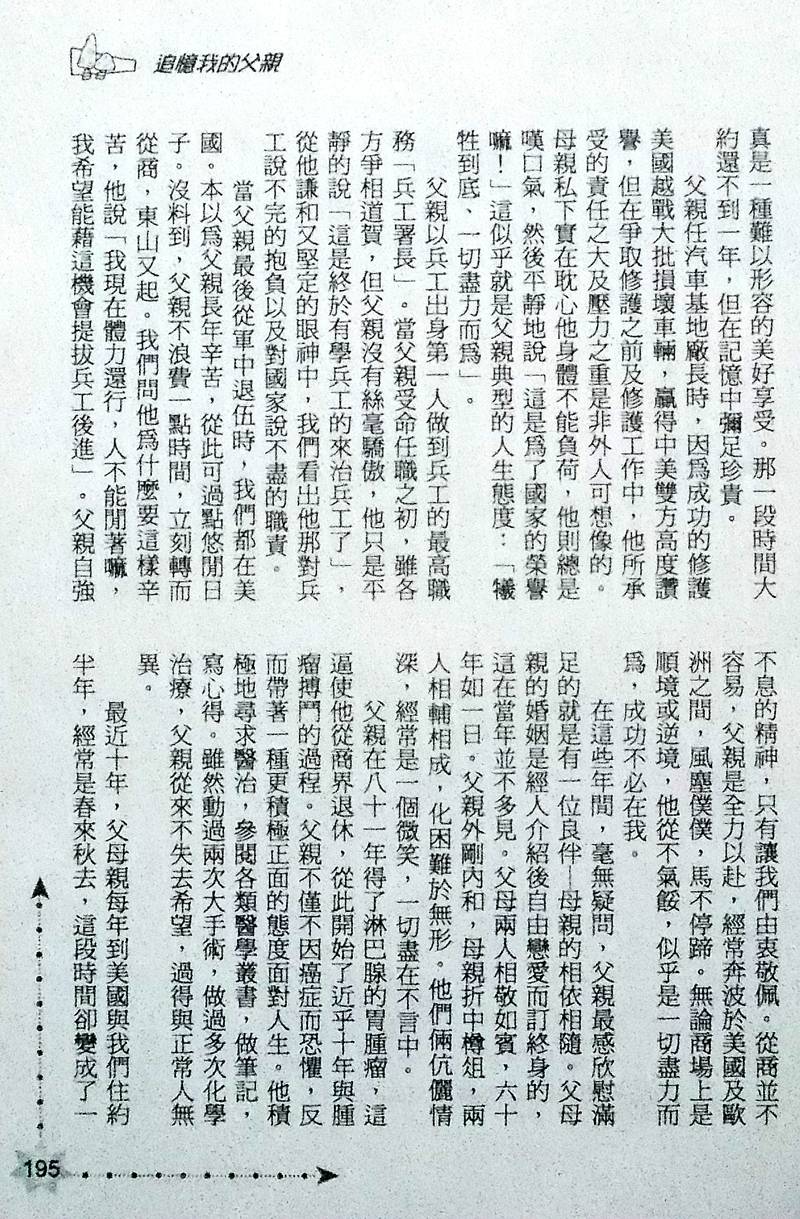 追憶我的父親
真是一種難以形容的美好享受。那一段時間大
約還不到一年，但在記憶中彌足珍貴。
父親任汽車基地廠長時，因爲成功的修護
美國越戰大批損壞車輛，贏得中美雙方高度讚
譽，但在爭取修護之前及修護工作中，他所承
受的責任之大及壓力之重是非外人可想像的。
母親私下實在耽心他身體不能負荷，他則總是
嘆口氣，然後平靜地說「這是爲了國家的榮譽
嘛！」這似乎就是父親典型的人生態度：「犧
牲到底、一切盡力而爲」。
父親以兵工出身第一人做到兵工的最高職
務「兵工署長」。當父親受命任職之初，雖各
方爭相道賀，但父親沒有絲毫驕傲，他只是平
靜的說「這是終於有學兵工的來治兵工了」，
從他謙和又堅定的眼神中，我們看出他那對兵
工說不完的抱負以及對國家說不盡的職責。
當父親最後從軍中退伍時，我們都在美
國。本以爲父親長年辛苦，從此可過點悠閒日
子。沒料到，父親不浪費一點時間，立刻轉而
從商，東山又起。我們問他爲什麼要這樣辛
苦，他說「我現在體力還行，人不能閒著嘛，
我希望能藉這機會提拔兵工後進」。父親自強
不息的精神，只有讓我們由衷敬佩。從商並不
容易，父親是全力以赴，經常奔波於美國及歐
洲之間，風塵僕僕，馬不停蹄。無論商場上是
順境或逆境，他從不氣餒，似乎是一切盡力而
爲，成功不必在我。
在這些年間，毫無疑問，父親最感欣慰滿
足的就是有一位良伴─母親的相依相隨。父母
親的婚姻是經人介紹後自由戀愛而訂終身的，
這在當年並不多見。父母兩人相敬如賓，六十
年如一日。父親外剛內和，母親折中樽俎，兩
人相輔相成，化困難於無形。他們倆伉儷情
深，經常是一個微笑，一切盡在不言中。
父親在八十一年得了淋巴腺的胃腫瘤，這
逼使他從商界退休，從此開始了近乎十年與腫
瘤搏鬥的過程。父親不僅不因癌症而恐懼，反
而帶著一種更積極正面的態度面對人生。他積
極地尋求醫治，參閱各類醫學叢書，做筆記，
寫心得。雖然動過兩次大手術，做過多次化學
治療，父親從來不失去希望，過得與正常人無
異。
最近十年，父母親每年到美國與我們住約
半年，經常是春來秋去，這段時間卻變成了一
195